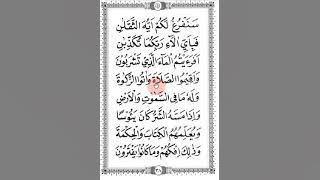 سَنَفْرُغُ لَكُمْ اَيُّهَ الثَّقَلٰنِ
فَبِاَيِّ اٰلَآءِ رَبِّكُمَا تُكَذِّبٰنِ
اَفَرَءَيْتُمُ الْمَآءَ الَّذِيْ تَشْرَبُوْنَ
وَاَقِيْمُوا الصَّلٰوةَ وَاٰتُوا الزَّكٰوةَ
وَلَهٗ مَا فِي السَّمٰوٰتِ وَالْاَرْضِ
وَاِذَا مَسَّهُ الشَّرُّ كَانَ يَئُوْسًا
وَيُعَلِّمُهُمُ الْكِتَابَ وَالْحِكْمَةَ
وَذٰلِكَ اِفْكُهُمْ وَمَا كَانُوْا يَفْتَرُوْنَ